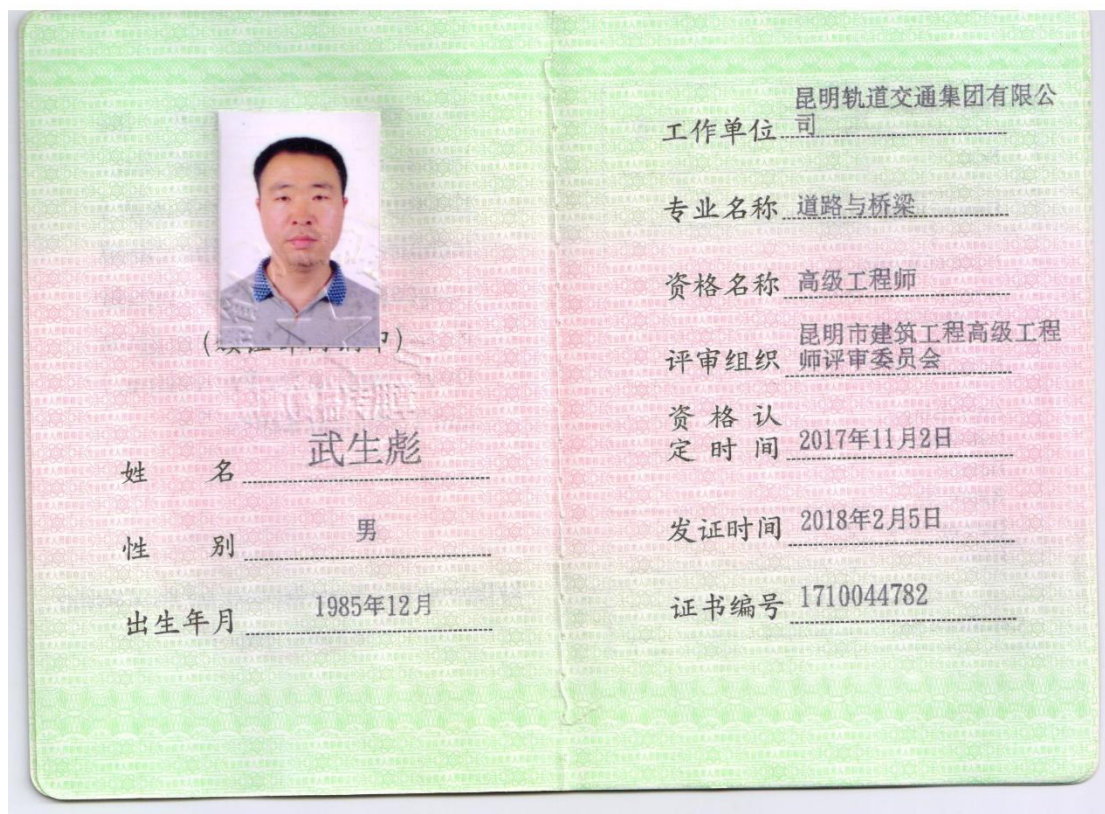 姓 名 武生彪
性 别 男
出生年月 1985年12月
工作单位 昆明轨道交通集团有限公
司
专业名称 道路与桥梁
资格名称 高级工程师
评审组织 昆明市建筑工程高级工程
师评审委员会
资 格 认
定 时 间 2017年11月2日
发证时间 2018年2月5日
证书编号 1710044782